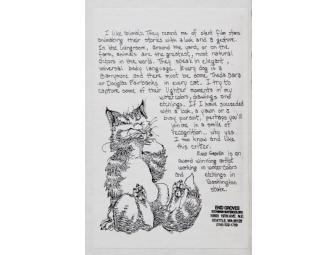 I like animals. They remind me of silent film stars
animating their stories with a look and a gesture.
In the livingroom, around the yard, or on the
farm, animals are the greatest, most natural
actors in the world. They speak in elegant,
universal body language. Every dog is a
Barrymore and there must be some Theda Bara
or Douglas Fairbanks in every cat. I try to
capture some of their lighter moments in my
watercolors, drawings and
etchings. If I have succeeded
with a look, a yawn or a
busy pursuit, perhaps you'll
join me in a smile of
recognition... why yes
I too know and like
this critter.
Enid Groves is an
award winning artist
working in watercolors
and etchings in
Washington
State.
ENID GROVES
SEATTLE, WA